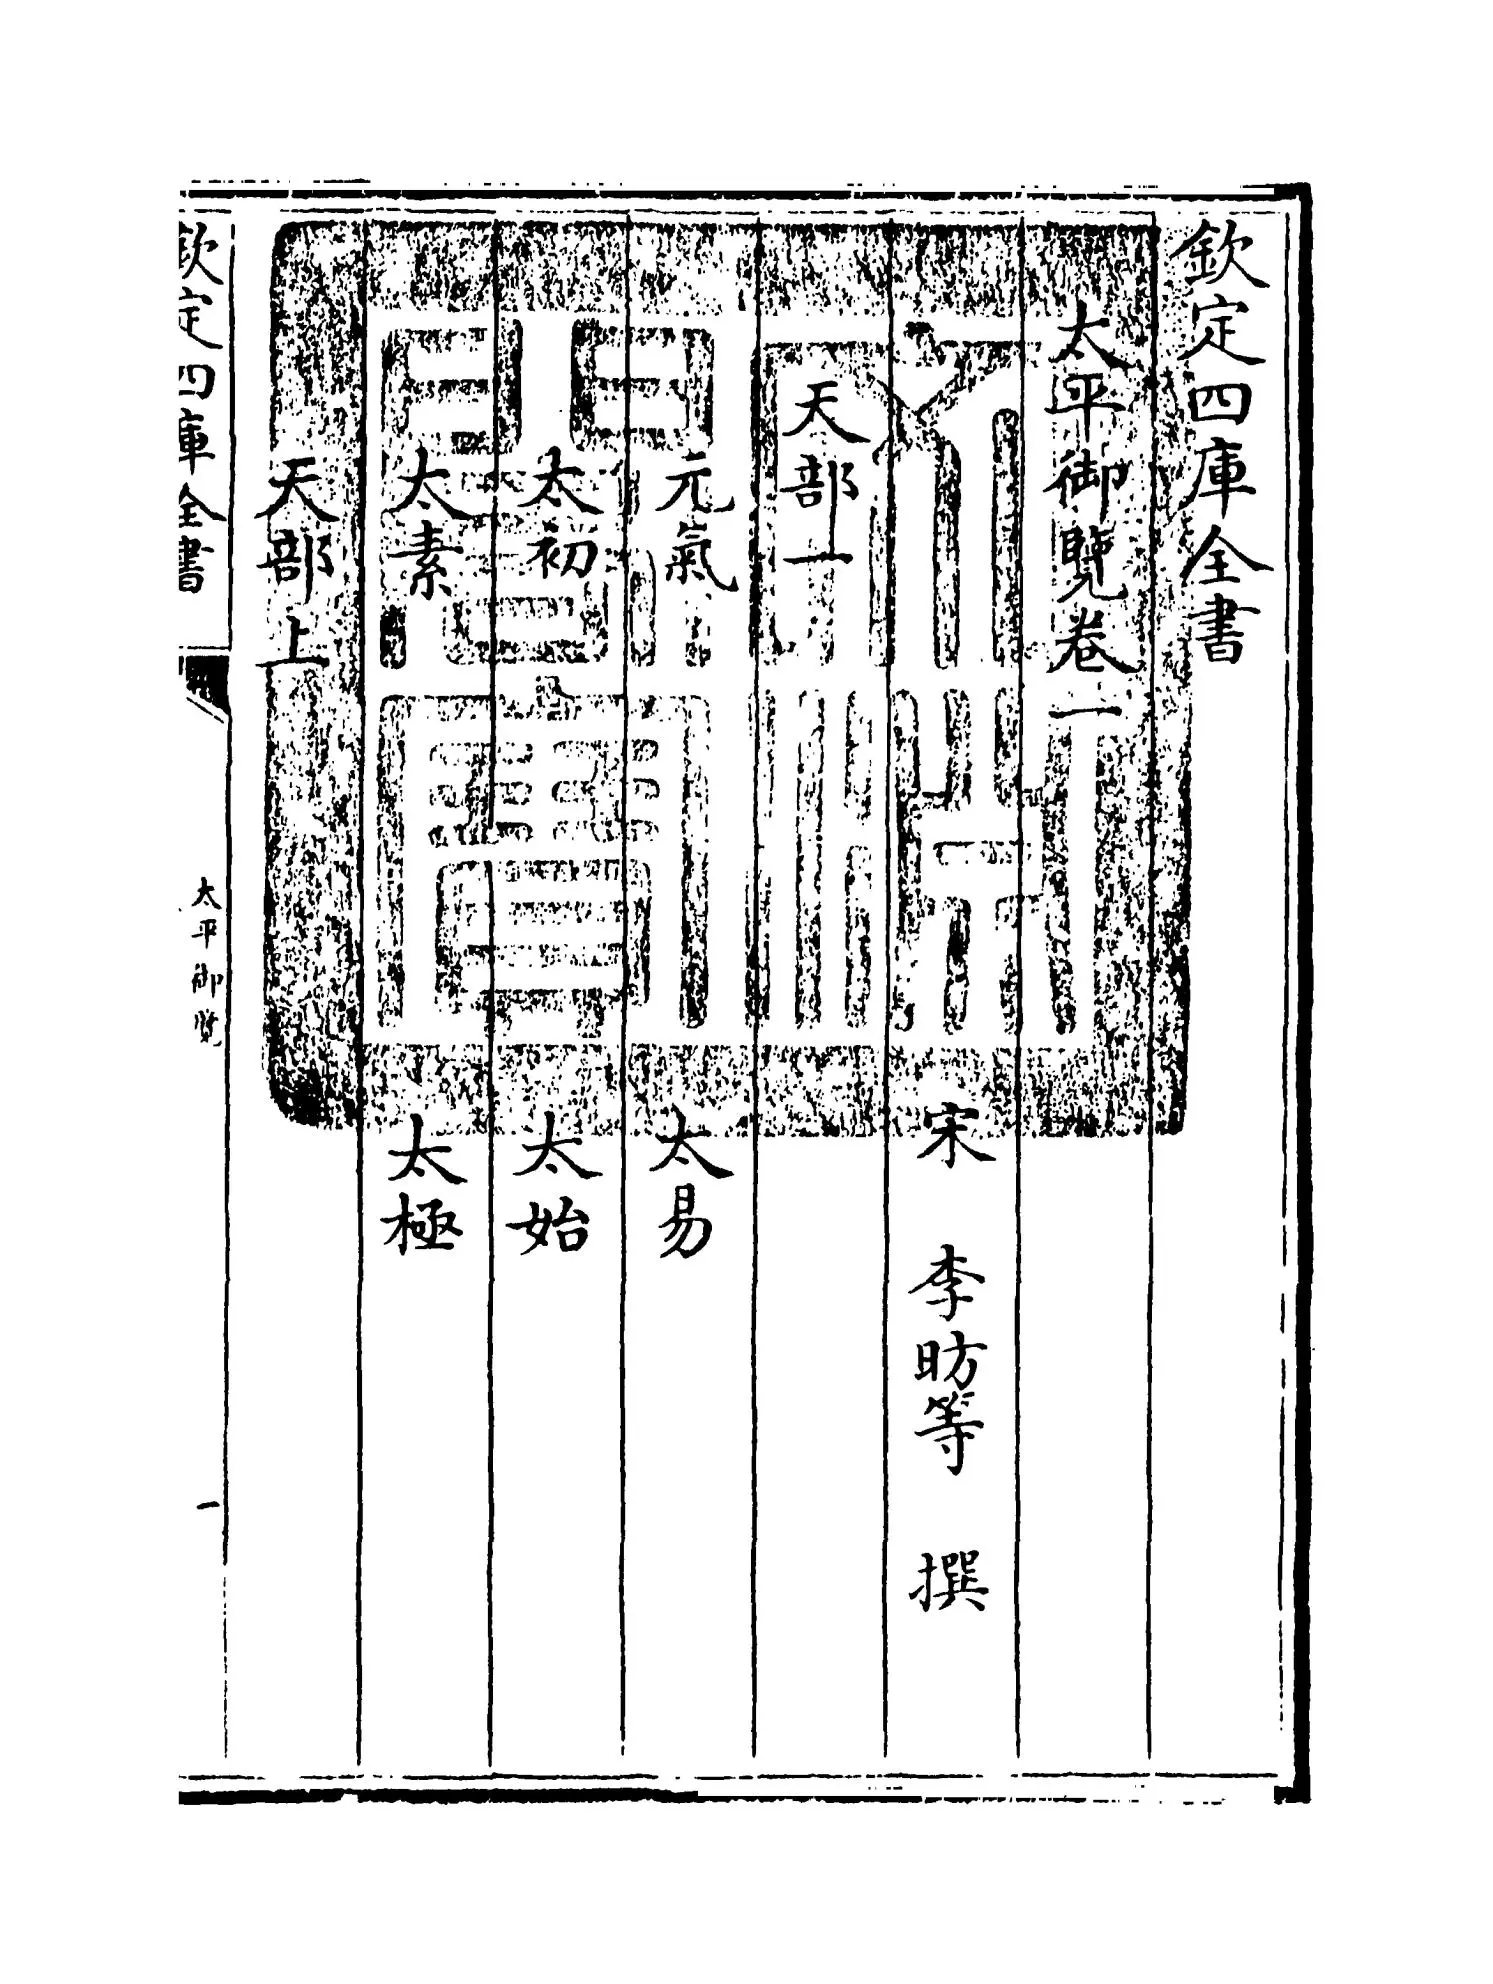 欽定四庫全書
太平御覽卷一
宋 李昉等 撰
天部一
元氣 太易
太初 太始
太素 太極
天部上
欽定四庫全書
太平御覽
一